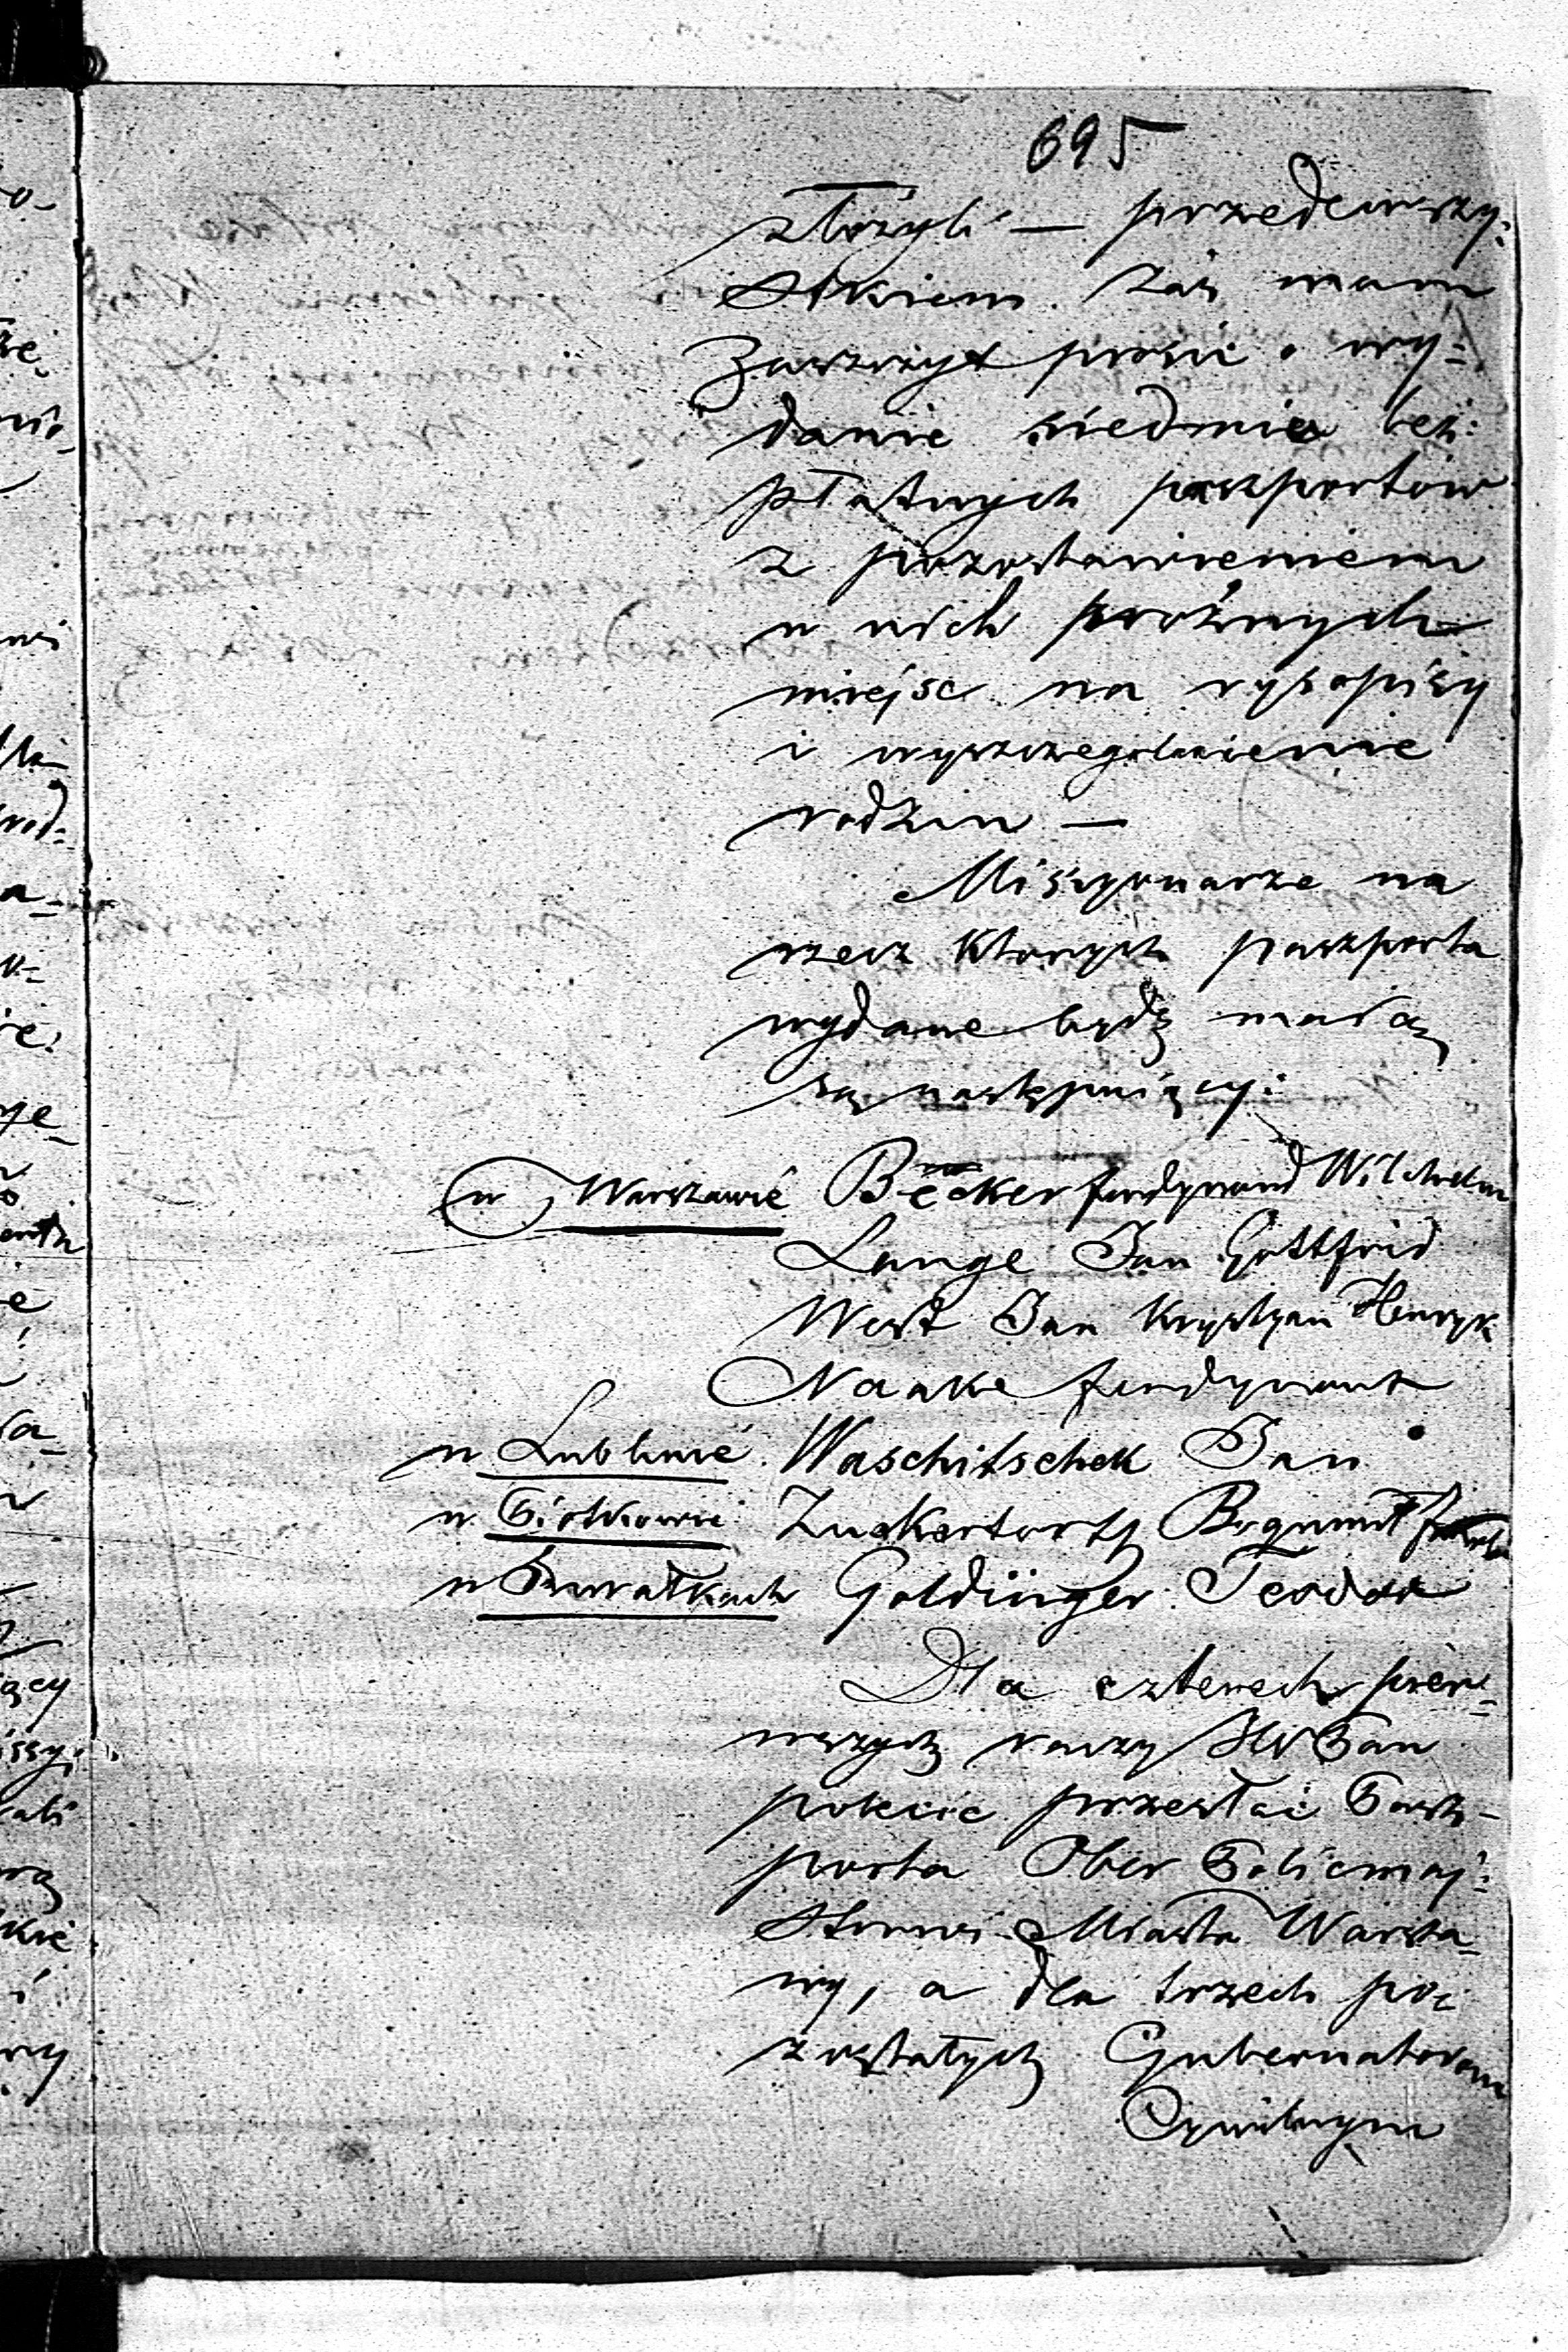 695
złożyli — przedewszy:
stkiem zaś mam
zaszczyt prosić o wy:
danie siedmiu bez:
płatnych paszportów
z pozostawieniem
w nich próżnych
miejsc na rysopisy
i wyszczególnienie
rodzin —
Missyonarze na
rzecz których paszporta
wydane będą
są następujący:
w Warszawie Becker Ferdynand Wilhelm
Lange Jan Gottfrid
West Jan Krystyan Henryk
Naake Ferdynant
w Lublinie Waschitschek Jan
w Piotrkowie Zuckertort Bogumił
w Suwałkach Goldinger Teodor
Dla czterech pier-
wszych raczy JW Pan
polecić przesłać Pasz-
porta Ober Policmaj:
strowi Miasta Warsza-
wy, a dla trzech po:
zostałych Gubernatorom
Cywilnym